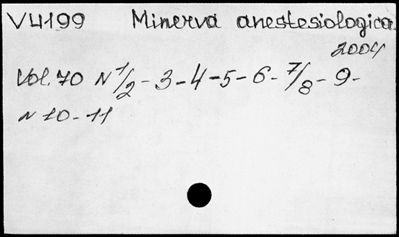 VU199 Minerva anestesiologica.
2004
Vol. 70 N 1/2 - 3 - 4 - 5 - 6 - 7/8 - 9 -
N 10 - 11